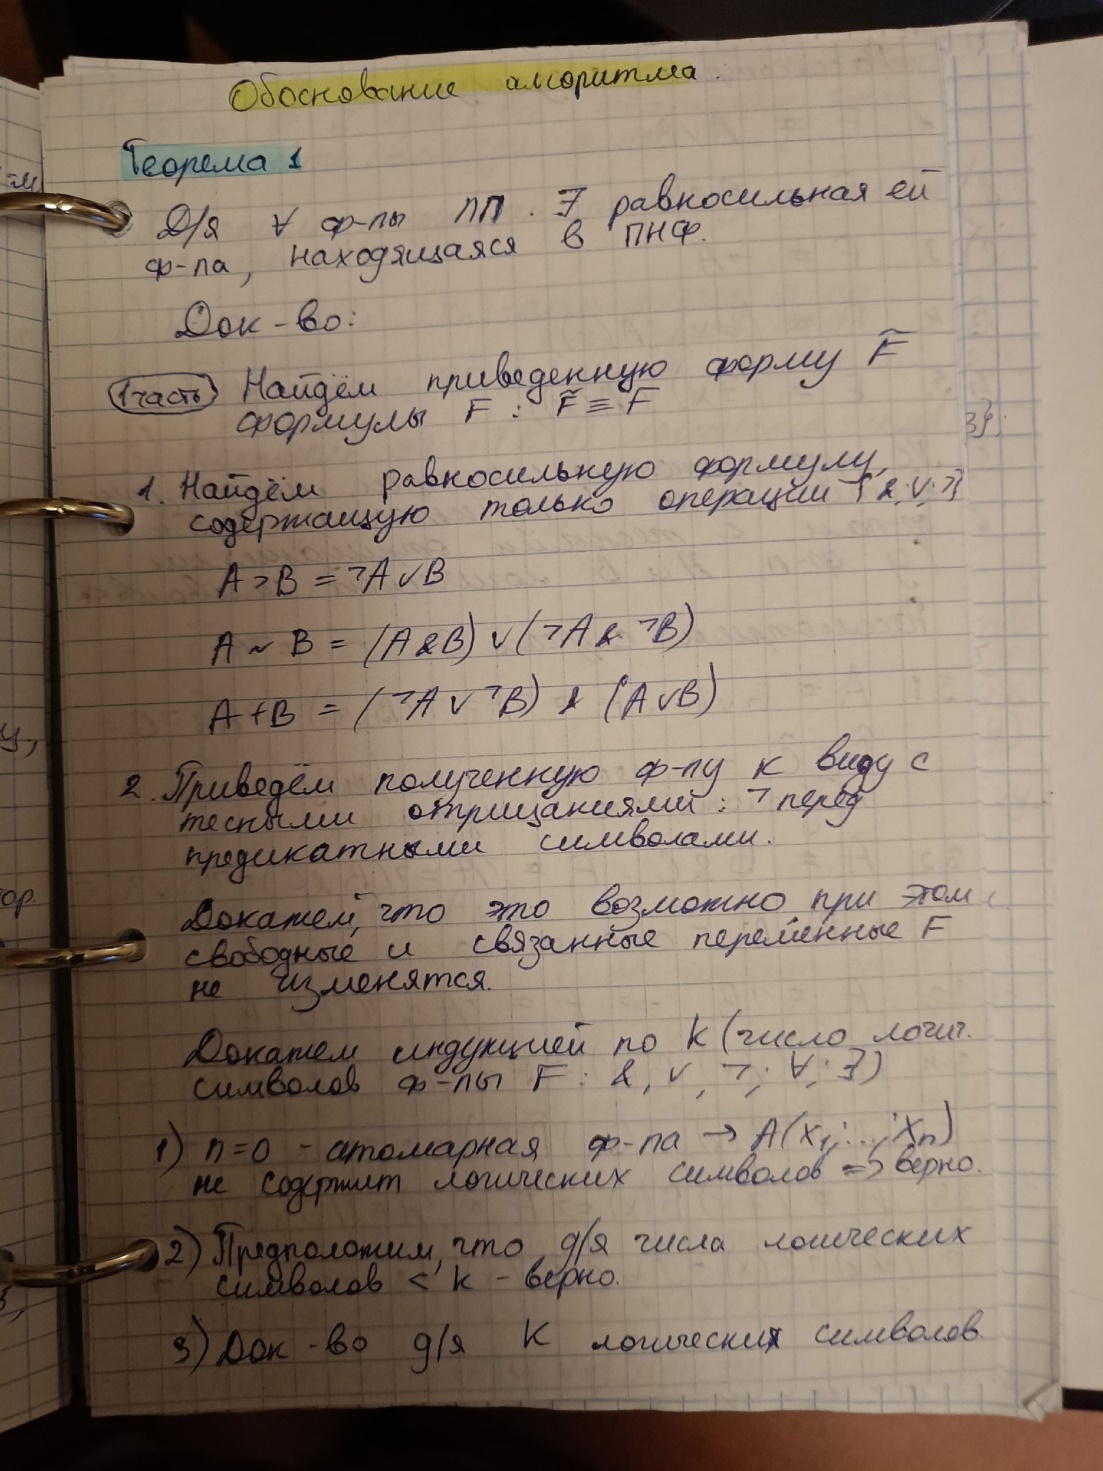 Обоснование алгоритма.
Теорема 1
Д/я ∀ ф-лы ЛП. ∃ равносильная ей
ф-ла, находящаяся в ПНФ.
Док-во:
1 часть Найдём приведенную форму F̃
формулы F : F̃ ≡ F
1. Найдём равносильную формулу,
содержащую только операции {&; ∨; ¬}
A ⊃ B = ¬A ∨ B
A ~ B = (A & B) ∨ (¬A & ¬B)
A + B = (¬A ∨ ¬B) & (A ∨ B)
2. Приведём полученную ф-лу к виду с
тесными отрицаниями : ¬ перед
предикатными символами.
Докажем, что это возможно, при этом
свободные и связанные переменные F
не изменятся.
Докажем индукцией по k (число логич.
символов ф-лы F : &, ∨, ¬; ∀; ∃)
1) n=0 - атомарная ф-ла → A(x₁; ...; xₙ)
не содержит логических символов => верно.
2) Предположим, что д/я числа логических
символов < k - верно.
3) Док-во д/я k логических символов.